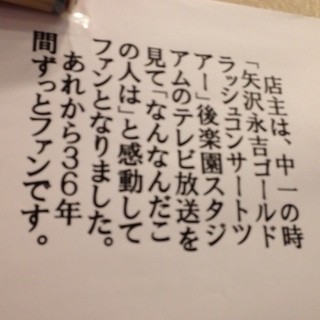 店主は、中一の時
「矢沢永吉ゴールド
ラッシュコンサートツ
アー」後楽園スタジ
アムのテレビ放送を
見て「なんなんだこ
の人は」と感動して
ファンとなりました。
あれから３６年
間ずっとファンです。